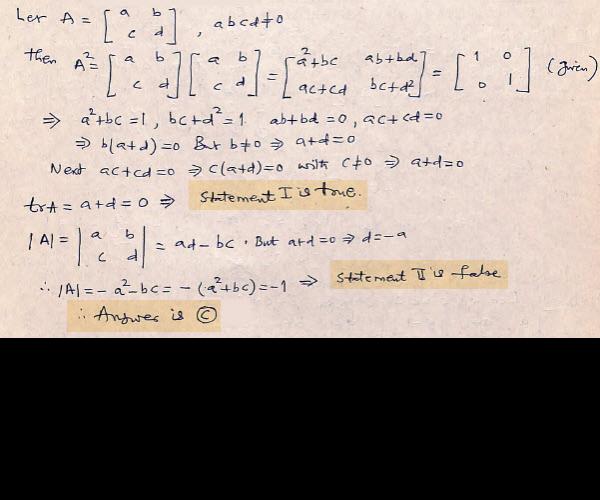 Let A = [a b; c d], abcd≠0
then A² = [a b; c d] [a b; c d] = [a²+bc ab+bd; ac+cd bc+d²] = [1 0; 0 1] (given)
⇒ a²+bc=1, bc+d²=1 ab+bd=0, ac+cd=0
⇒ b(a+d)=0 But b≠0 ⇒ a+d=0
Next ac+cd=0 ⇒ c(a+d)=0 with c≠0 ⇒ a+d=0
trA = a+d=0 ⇒ Statement I is true.
|A| = |a b; c d| = ad-bc. But a+d=0 ⇒ d=-a
∴ |A| = -a²-bc = -(a²+bc)=-1 ⇒ Statement II is false
∴ Answer is Ⓒ